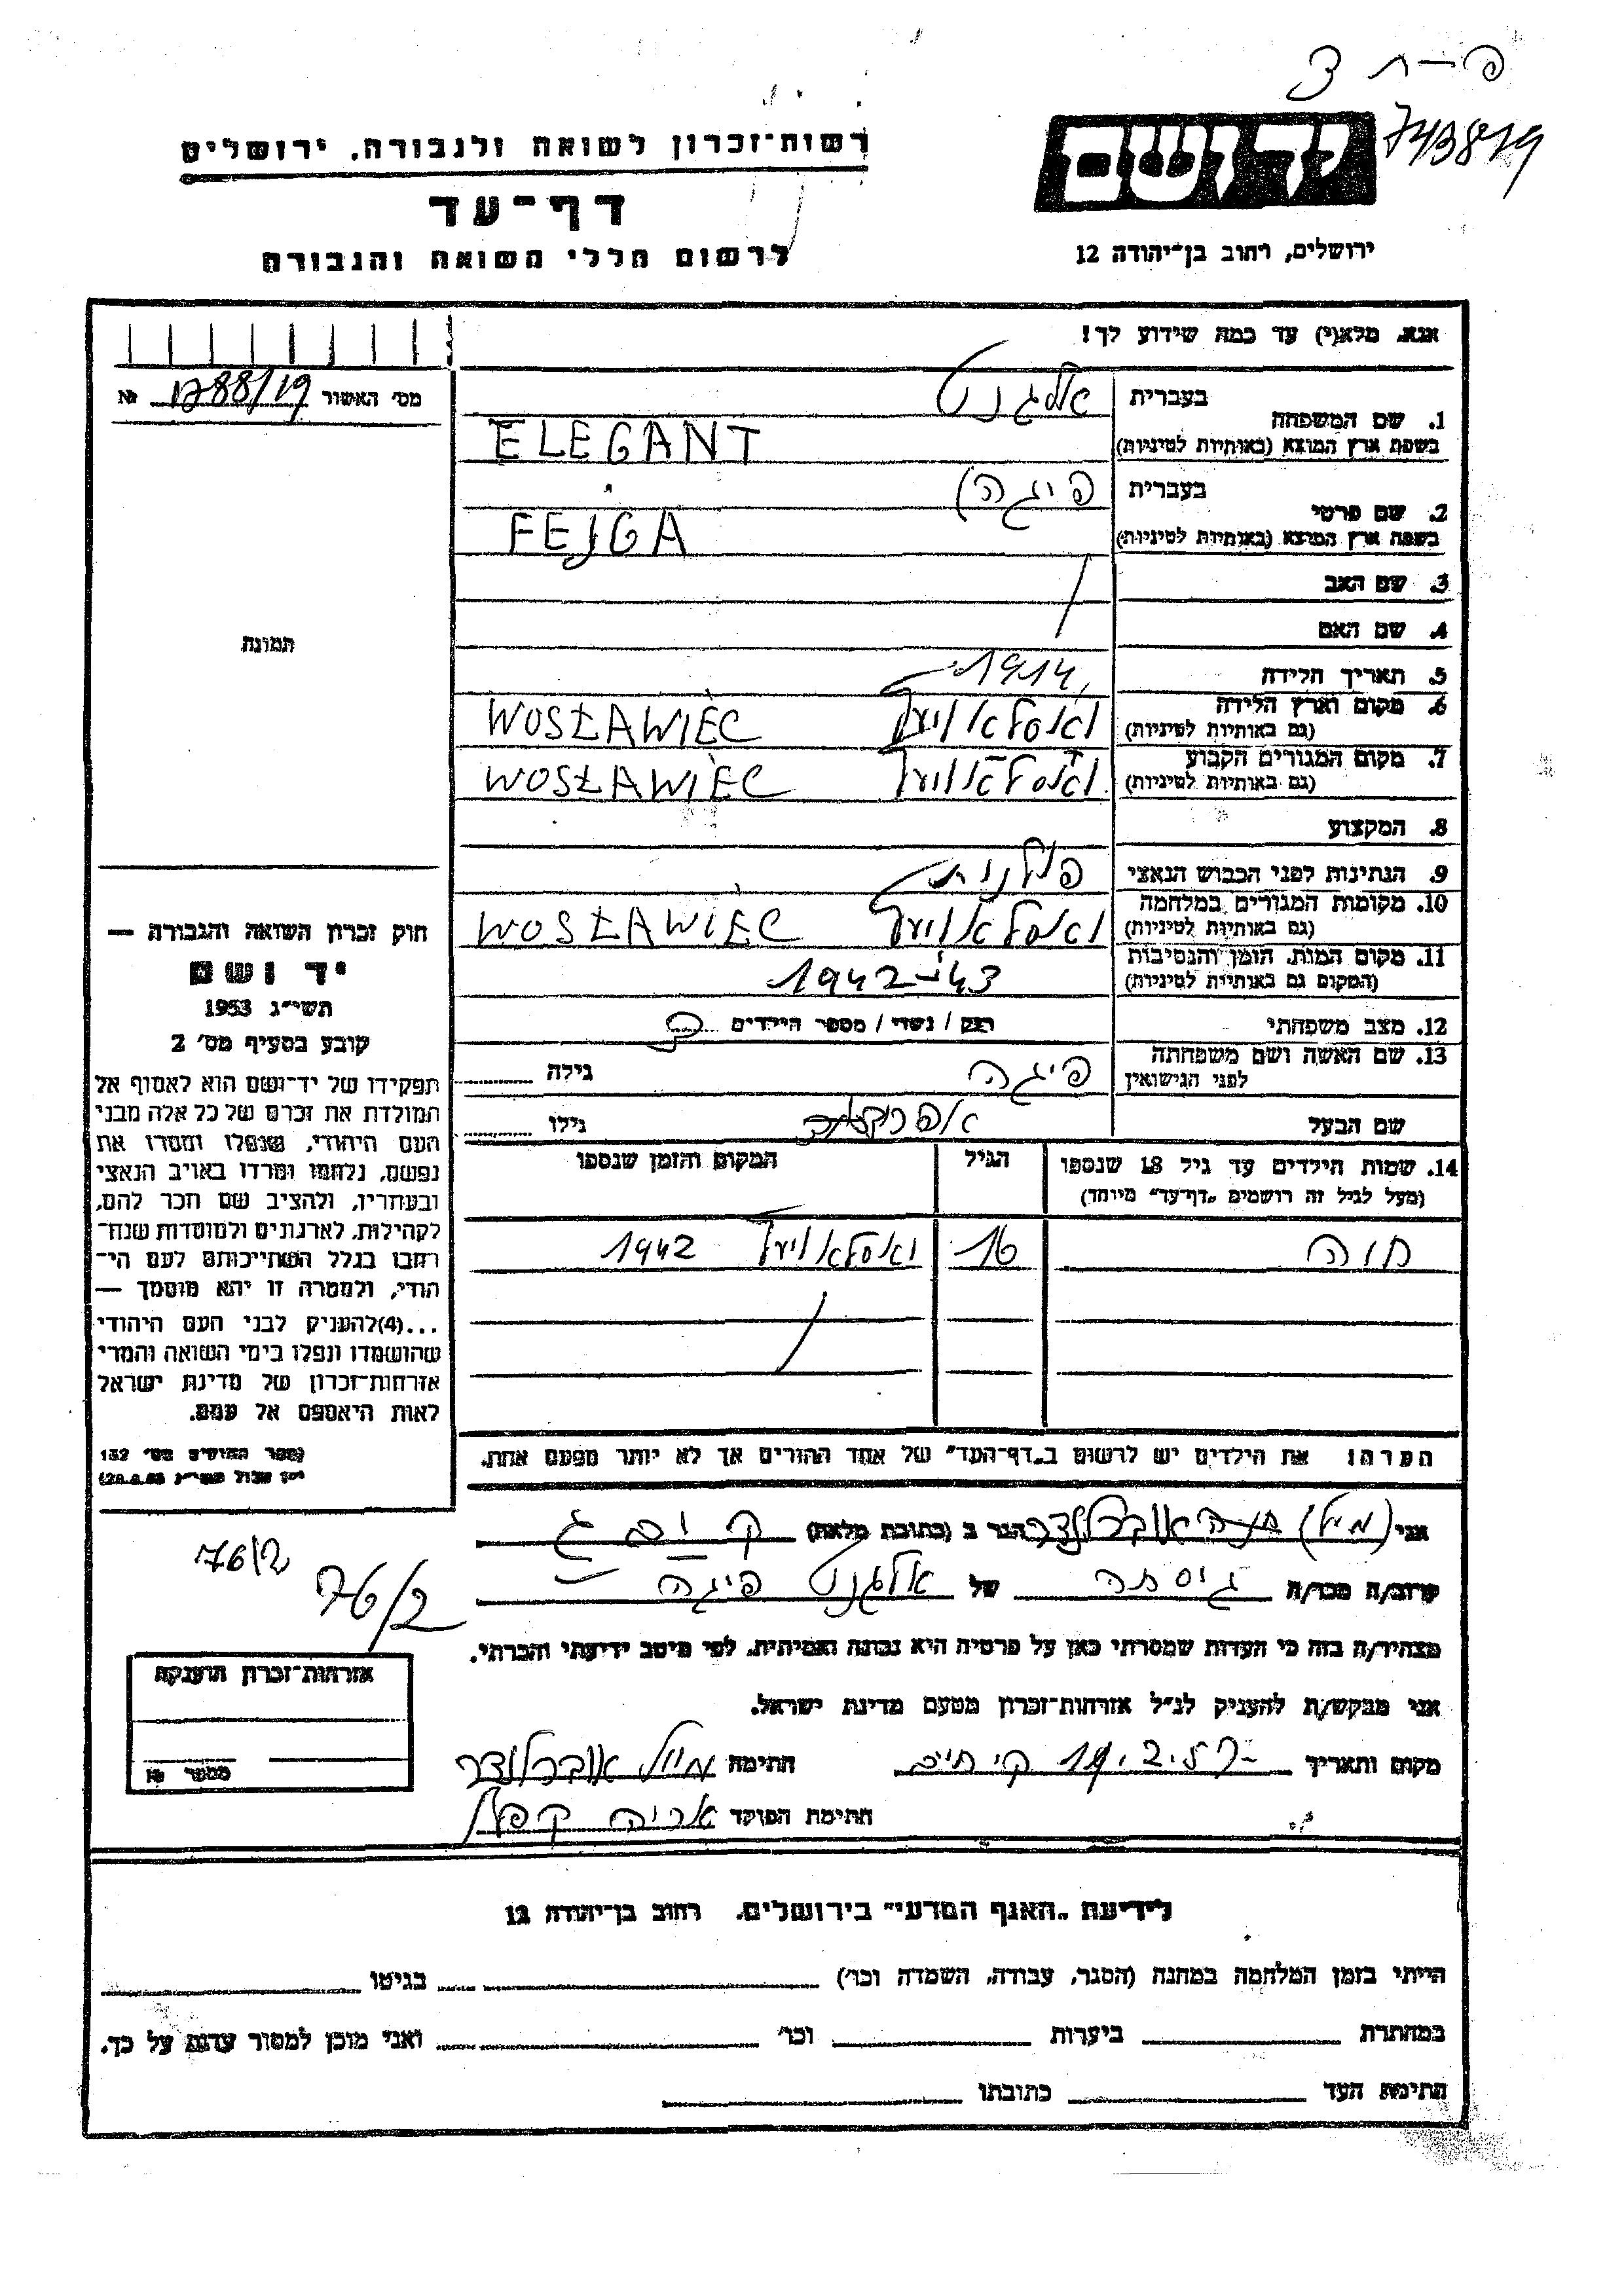 פ–ת 3
743879
יד ושם
ירושלים, רחוב בן־יהודה 12
רשות־זכרון לשואה ולגבורה, ירושלים
דף־עד
לרשום חללי השואה והגבורה
אנא, מלא(י) עד כמה שידוע לך!
מס׳ האשור № 1288/19
1. שם המשפחה בעברית אלגנט
בשפת ארץ המוצא (באותיות לטיניות) ELEGANT
2. שם פרטי בעברית פייגה
בשפת ארץ המוצא (באותיות לטיניות) FEJGA
3. שם האב
4. שם האם
5. תאריך הלידה 1914
6. מקום וארץ הלידה (גם באותיות לטיניות) WOSŁAWIEC
7. מקום המגורים הקבוע (גם באותיות לטיניות) WOSŁAWIEC
8. המקצוע
9. הנתינות לפני הכבוש הנאצי פולנית
10. מקומות המגורים במלחמה (גם באותיות לטיניות) WOSŁAWIEC
11. מקום המות, הזמן והנסיבות (המקום גם באותיות לטיניות) 1942–43
12. מצב משפחתי רוק / נשוי / מספר הילדים
13. שם האשה ושם משפחתה לפני הנישואין פייגה גילה
שם הבעל גילו
14. שמות הילדים עד גיל 18 שנספו
(מעל לגיל זה רושמים „דף־עד" מיוחד)
הגיל
המקום והזמן שנספו
חוה 16 1942
הערה: את הילדים יש לרשום ב„דף־העד" של אחד ההורים אך לא יותר מפעם אחת.
תמונה
חוק זכרון השואה והגבורה —
יד ושם
תשי״ג 1953
קובע בסעיף מס׳ 2
תפקידו של יד־ושם הוא לאסוף אל
המולדת את זכרם של כל אלה מבני
העם היהודי, שנפלו ומסרו את
נפשם, נלחמו ומרדו באויב הנאצי
ובעוזריו, ולהציב שם וזכר להם,
לקהילות, לארגונים ולמוסדות שנח־
רבו בגלל השתייכותם לעם הי־
הודי, ולמטרה זו יהא מוסמך —
...(4)להעניק לבני העם היהודי
שהושמדו ונפלו בימי השואה והמרי
אזרחות־זכרון של מדינת ישראל
לאות היאספם אל עמם.
(ספר החוקים מס׳ 132
76/2
76/2
אני הגר ב (כתובת מלאה)
קרוב/ה מכר/ה גיסתה של אלגנט פייגה
מצהיר/ה בזה כי העדות שמסרתי כאן על פרטיה היא נכונה ואמיתית, לפי מיטב ידיעתי והכרתי.
אני מבקש/ת להעניק לנ״ל אזרחות־זכרון מטעם מדינת ישראל.
מקום ותאריך חתימה
חתימת הפוקד אריה
אזרחות־זכרון הוענקה
מספר №
לידיעת „האגף המדעי" בירושלים, רחוב בן־יהודה 12
הייתי בזמן המלחמה במחנה (הסגר, עבודה, השמדה וכו׳) בגיטו
במחתרת ביערות וכו׳ ואני מוכן למסור עדות על כך.
חתימת העד כתובתו